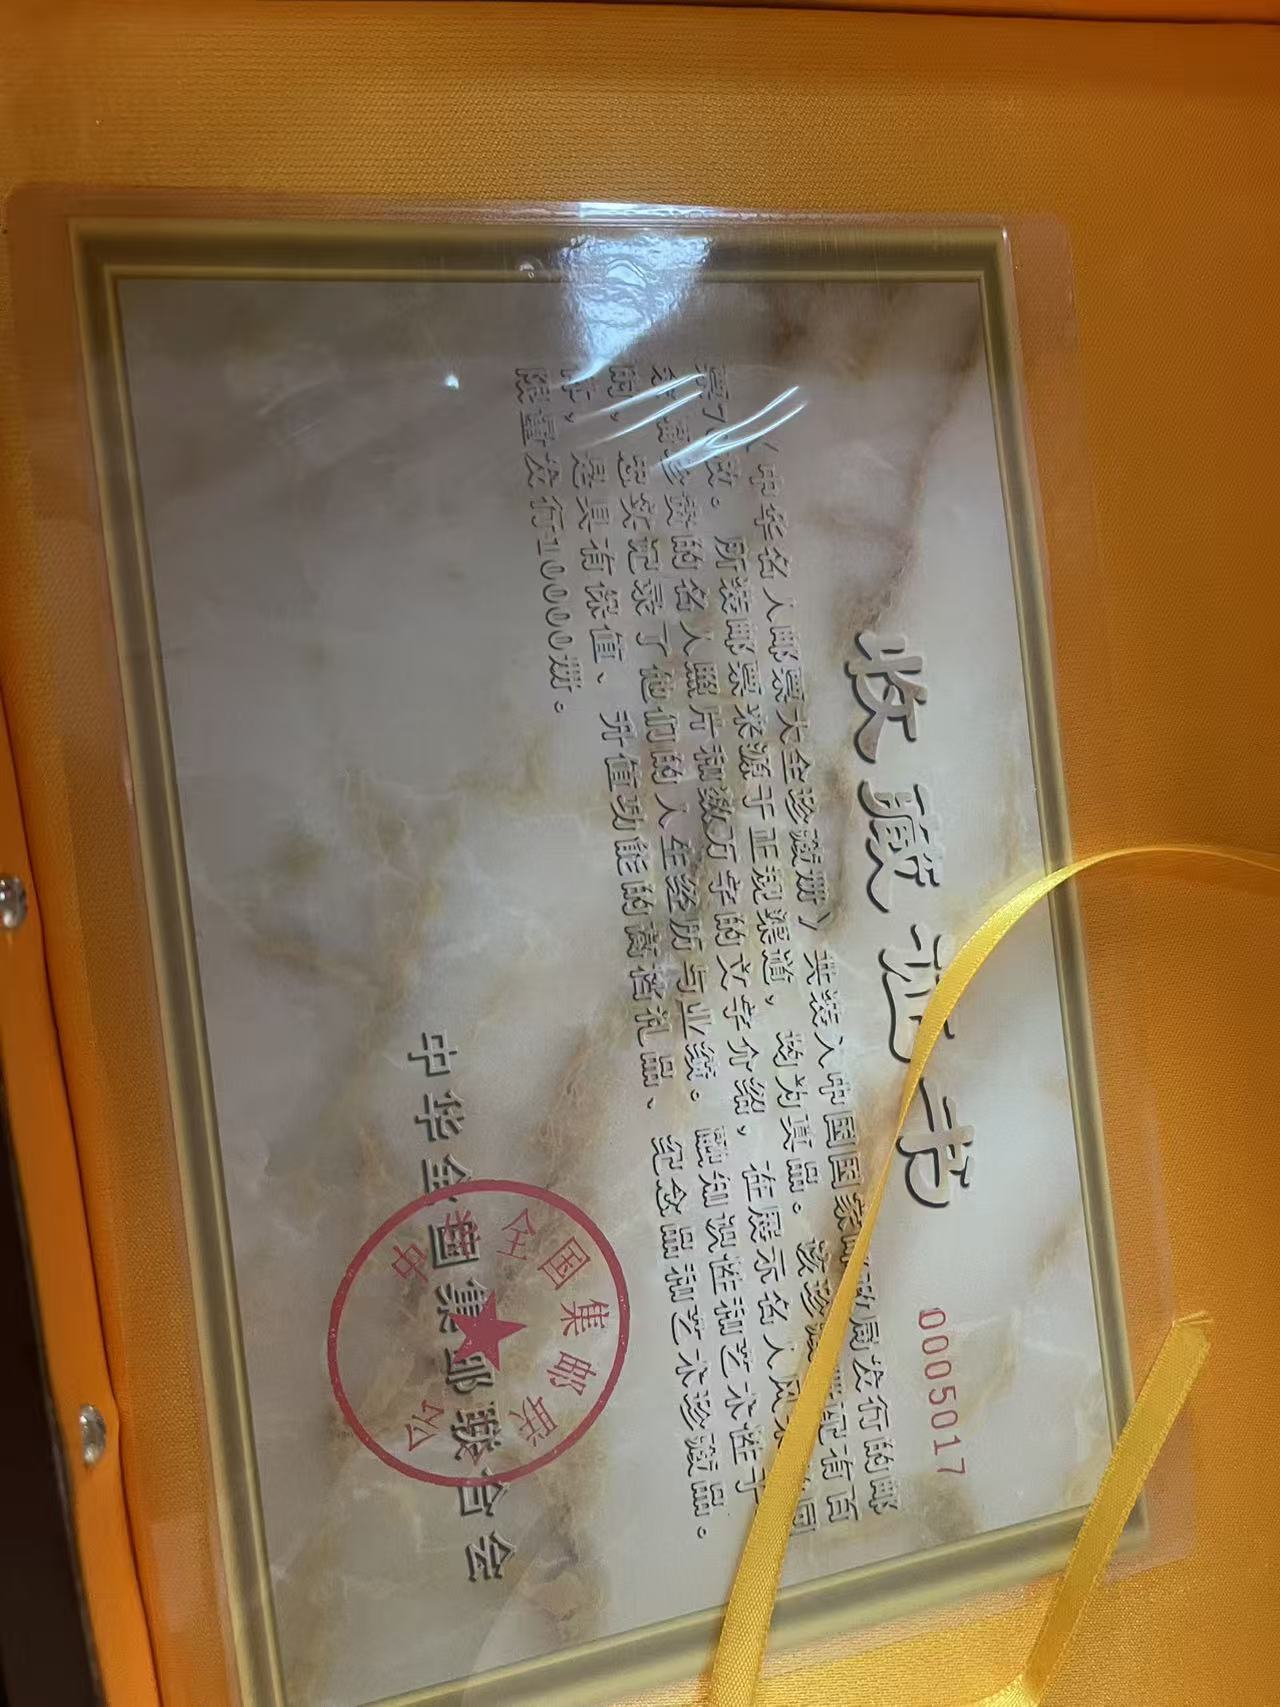 收藏证书
0005017
《中华名人邮票大全珍藏册》共装入中国国家邮政局发行的邮
票7 枚。所装邮票来源于正规渠道,均为真品。该珍藏册配有百
余幅珍贵的名人照片和数万字的文字介绍,在展示名人风采 同
时,忠实记录了他们的人生经历与业绩。融知识性和艺术性于
体,是具有保值、升值功能的高档礼品、纪念品和艺术珍藏品。
限量发行10000册。
中华全国集邮联合会
中华全国集邮联 会